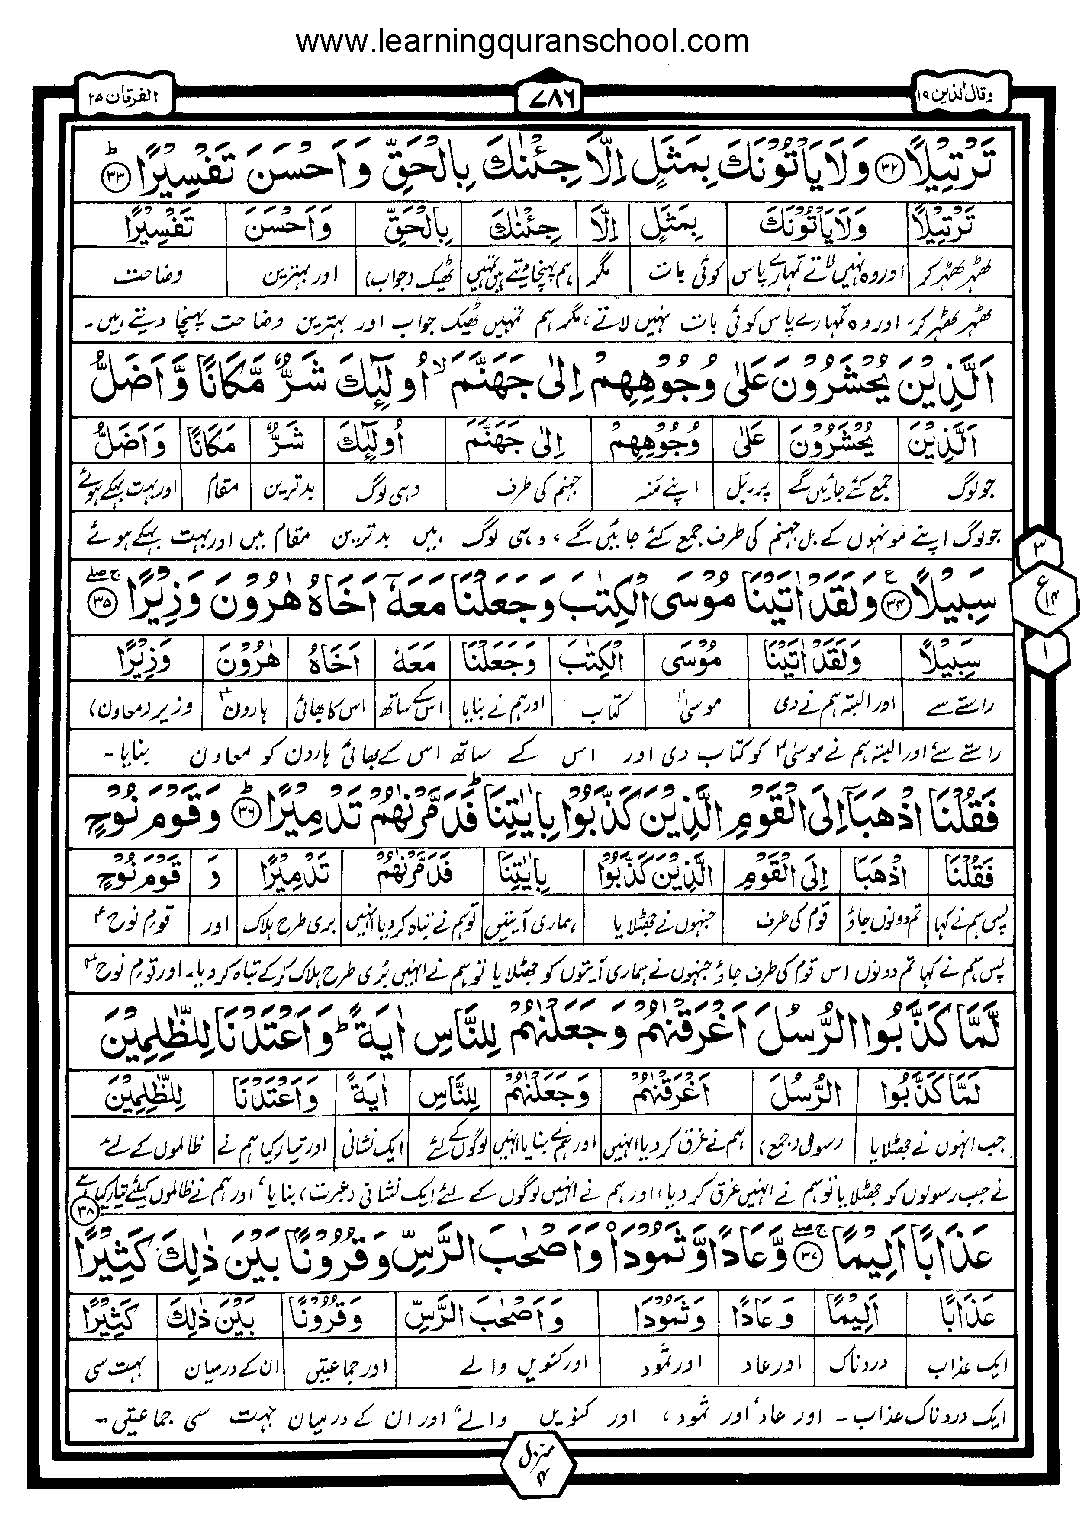 www.learningquranschool.com
وقال الذين ١٩
٧٨٦
الفرقان ٢٥
تَرْتِيْلًا ﴿٣٢﴾ وَلَا يَاْتُوْنَكَ بِمَثَلٍ اِلَّا جِئْنٰكَ بِالْحَقِّ وَاَحْسَنَ تَفْسِيْرًا ﴿٣٣﴾ؕ
تَرْتِيْلًا وَلَا يَاْتُوْنَكَ بِمَثَلٍ اِلَّا جِئْنٰكَ بِالْحَقِّ وَاَحْسَنَ تَفْسِيْرًا
ٹھہر ٹھہر کر اور وہ نہیں لاتے تمہارے پاس کوئی بات مگر ہم پہنچا دیتے ہیں تمہیں ٹھیک (جواب) اور بہترین وضاحت
ٹھہر ٹھہر کر، اور وہ تمہارے پاس کوئی بات نہیں لاتے، مگر ہم تمہیں ٹھیک جواب اور بہترین وضاحت پہنچا دیتے ہیں۔
اَلَّذِيْنَ يُحْشَرُوْنَ عَلٰى وُجُوْهِهِمْ اِلٰى جَهَنَّمَ ۙ اُولٰٓئِكَ شَرٌّ مَّكَانًا وَّاَضَلُّ
اَلَّذِيْنَ يُحْشَرُوْنَ عَلٰى وُجُوْهِهِمْ اِلٰى جَهَنَّمَ اُولٰٓئِكَ شَرٌّ مَكَانًا وَاَضَلُّ
جو لوگ جمع کئے جائیں گے پر۔ بل اپنے منہ جہنم کی طرف وہی لوگ بدترین مقام اور بہت بہکے ہوئے
جو لوگ اپنے مونہوں کے بل جہنم کی طرف جمع کئے جائیں گے، وہی لوگ ہیں بدترین مقام میں اور بہت بہکے ہوئے
سَبِيْلًا ﴿٣٤﴾ع وَلَقَدْ اٰتَيْنَا مُوْسَى الْكِتٰبَ وَجَعَلْنَا مَعَهٗٓ اَخَاهُ هٰرُوْنَ وَزِيْرًا ﴿٣٥﴾
سَبِيْلًا وَلَقَدْ اٰتَيْنَا مُوْسَى الْكِتٰبَ وَجَعَلْنَا مَعَهٗ اَخَاهُ هٰرُوْنَ وَزِيْرًا
راستے سے اور البتہ ہم نے دی موسیٰ کتاب اور ہم نے بنایا اس کے ساتھ اس کا بھائی ہارون وزیر (معاون)
راستے سے، اور البتہ ہم نے موسیٰ کو کتاب دی اور اس کے ساتھ اس کے بھائی ہارون کو معاون بنایا۔
فَقُلْنَا اذْهَبَآ اِلَى الْقَوْمِ الَّذِيْنَ كَذَّبُوْا بِاٰيٰتِنَا ؕ فَدَمَّرْنٰهُمْ تَدْمِيْرًا ﴿٣٦﴾ؕ وَقَوْمَ نُوْحٍ
فَقُلْنَا اذْهَبَا اِلَى الْقَوْمِ الَّذِيْنَ كَذَّبُوْا بِاٰيٰتِنَا فَدَمَّرْنٰهُمْ تَدْمِيْرًا وَ قَوْمَ نُوْحٍ
پس ہم نے کہا تم دونوں جاؤ قوم کی طرف جنہوں نے جھٹلایا ہماری آیتیں تو ہم نے تباہ کر دیا انہیں بری طرح ہلاک اور قوم نوح
پس ہم نے کہا تم دونوں اس قوم کی طرف جاؤ جنہوں نے ہماری آیتوں کو جھٹلایا تو ہم نے انہیں بُری طرح ہلاک کر کے تباہ کر دیا۔ اور قوم نوح
لَّمَّا كَذَّبُوا الرُّسُلَ اَغْرَقْنٰهُمْ وَجَعَلْنٰهُمْ لِلنَّاسِ اٰيَةً ؕ وَاَعْتَدْنَا لِلظّٰلِمِيْنَ
لَمَّا كَذَّبُوا الرُّسُلَ اَغْرَقْنٰهُمْ وَجَعَلْنٰهُمْ لِلنَّاسِ اٰيَةً وَاَعْتَدْنَا لِلظّٰلِمِيْنَ
جب انہوں نے جھٹلایا رسول (جمع) ہم نے غرق کر دیا انہیں اور ہم نے بنایا انہیں لوگوں کے لئے ایک نشانی اور تیار کیا ہم نے ظالموں کے لئے
نے جب رسولوں کو جھٹلایا تو ہم نے انہیں غرق کر دیا، اور ہم نے انہیں لوگوں کے لئے ایک نشانی (عبرت) بنایا، اور ہم نے ظالموں کیلئے تیار کیا ہے
عَذَابًا اَلِيْمًا ﴿٣٧﴾ وَّعَادًا وَّثَمُوْدَا۟ وَاَصْحٰبَ الرَّسِّ وَقُرُوْنًا بَيْنَ ذٰلِكَ كَثِيْرًا ﴿٣٨﴾
عَذَابًا اَلِيْمًا وَعَادًا وَثَمُوْدَا وَاَصْحٰبَ الرَّسِّ وَقُرُوْنًا بَيْنَ ذٰلِكَ كَثِيْرًا
ایک عذاب دردناک اور عاد اور ثمود اور کنویں والے اور جماعتیں ان کے درمیان بہت سی
ایک دردناک عذاب۔ اور عاد اور ثمود، اور کنویں والے، اور ان کے درمیان بہت سی جماعتیں۔
٣
ع
١٤
١
منزل ٤